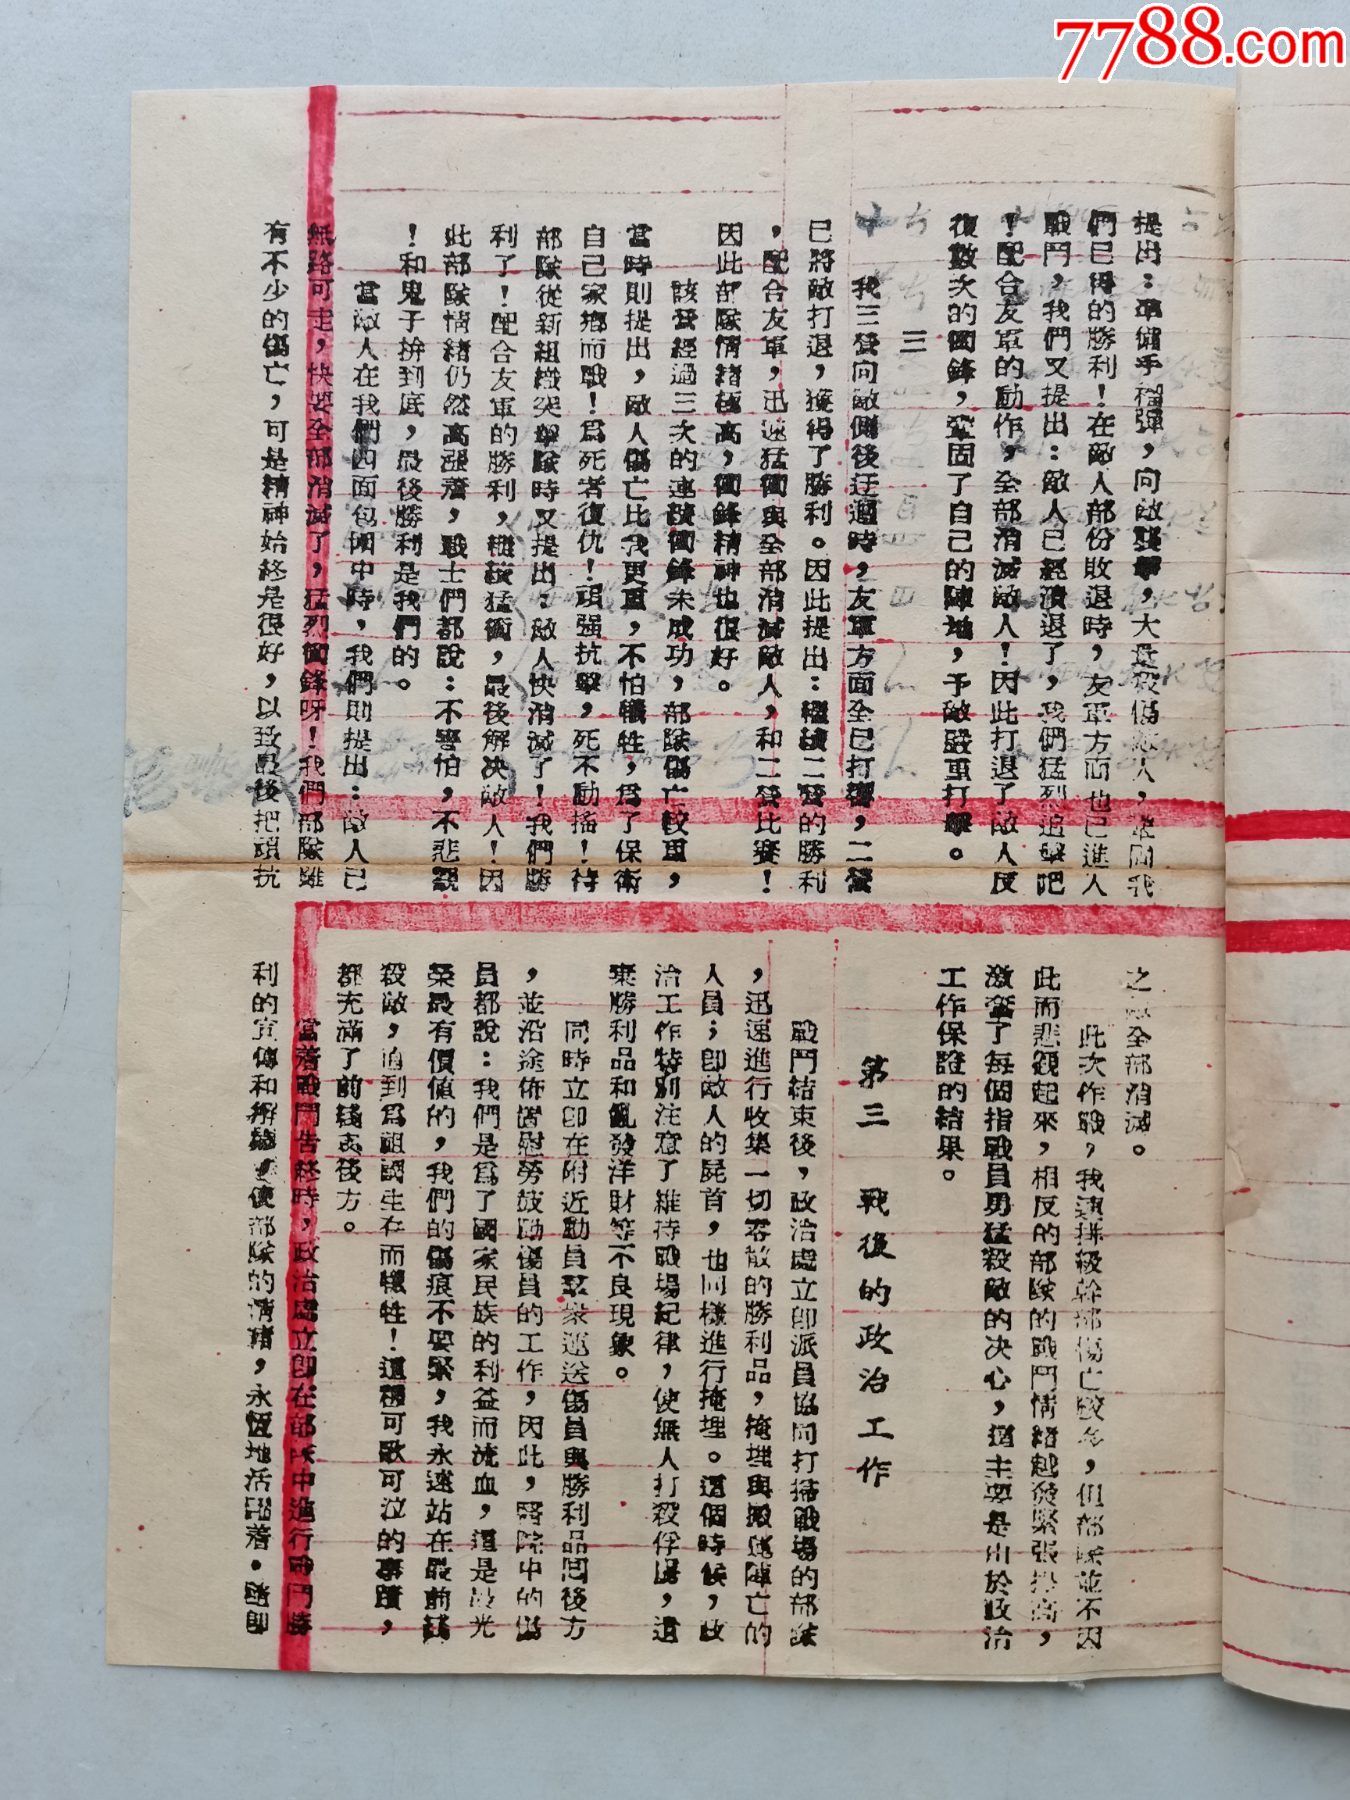 7788.com
提出：準備手榴彈，向敵襲擊，大量殺傷敵人，鞏固我
們已得的勝利！在敵人部份敗退時，友軍方面也已進入
戰鬥，我們又提出：敵人已經潰退了，我們猛烈追擊吧
！配合友軍的動作，全部消滅敵人！因此打退了敵人反
復數次的衝鋒，鞏固了自己的陣地，予敵嚴重打擊。
三
我三營向敵側後迂迴時，友軍方面全已打響，二營
已將敵打退，獲得了勝利。因此提出：繼續二營的勝利
，配合友軍，迅速猛衝與全部消滅敵人，和二營比賽！
因此部隊情緒極高，衝鋒精神也很好。
該營經過三次的連續衝鋒未成功，部隊傷亡較重，
當時則提出，敵人傷亡比我更重，不怕犧牲，爲了保衛
自己家鄉而戰！爲死者復仇！頑强抗擊，死不動搖！待
部隊從新組織突擊隊時又提出：敵人快消滅了！我們勝
利了！配合友軍的勝利，繼續猛衝，最後解决敵人！因
此部隊情緒仍然高漲着，戰士們都說：不害怕，不悲觀
！和鬼子拚到底，最後勝利是我們的。
當敵人在我們四面包圍中時，我們則提出：敵人已
無路可走，快要全部消滅了，猛烈衝鋒呀！我們部隊雖
有不少的傷亡，可是精神始終是很好，以致最後把頑抗
之敵全部消滅。
此次作戰，我連排級幹部傷亡較多，但部隊並不因
此而悲觀起來，相反的部隊的戰鬥情緒越發緊張提高，
激奮了每個指戰員勇猛殺敵的决心，這主要是由於政治
工作保證的結果。
第三　戰後的政治工作
戰鬥結束後，政治處立即派員協同打掃戰場的部隊
，迅速進行收集一切零散的勝利品，掩埋與搬運陣亡的
人員；卽敵人的屍首，也同樣進行掩埋。這個時候，政
治工作特別注意了維持戰場紀律，使無人打殺俘虜，遺
棄勝利品和亂發洋財等不良現象。
同時立卽在附近動員羣衆運送傷員與勝利品回後方
，並沿途佈置慰勞鼓勵傷員的工作，因此，醫院中的傷
員都說：我們是爲了國家民族的利益而流血，這是最光
榮最有價値的，我們的傷痕不要緊，我永遠站在最前綫
殺敵，直到爲祖國生存而犧牲！這種可歌可泣的事蹟，
都充滿了前綫與後方。
當着戰鬥告終時，政治處立卽在部隊中進行戰鬥勝
利的宣傳和解釋，使部隊的情緒，永恆地活躍着。隨卽